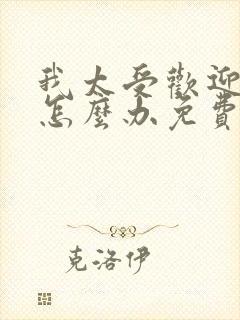 我太受歡迎
怎麼办免費
克洛伊